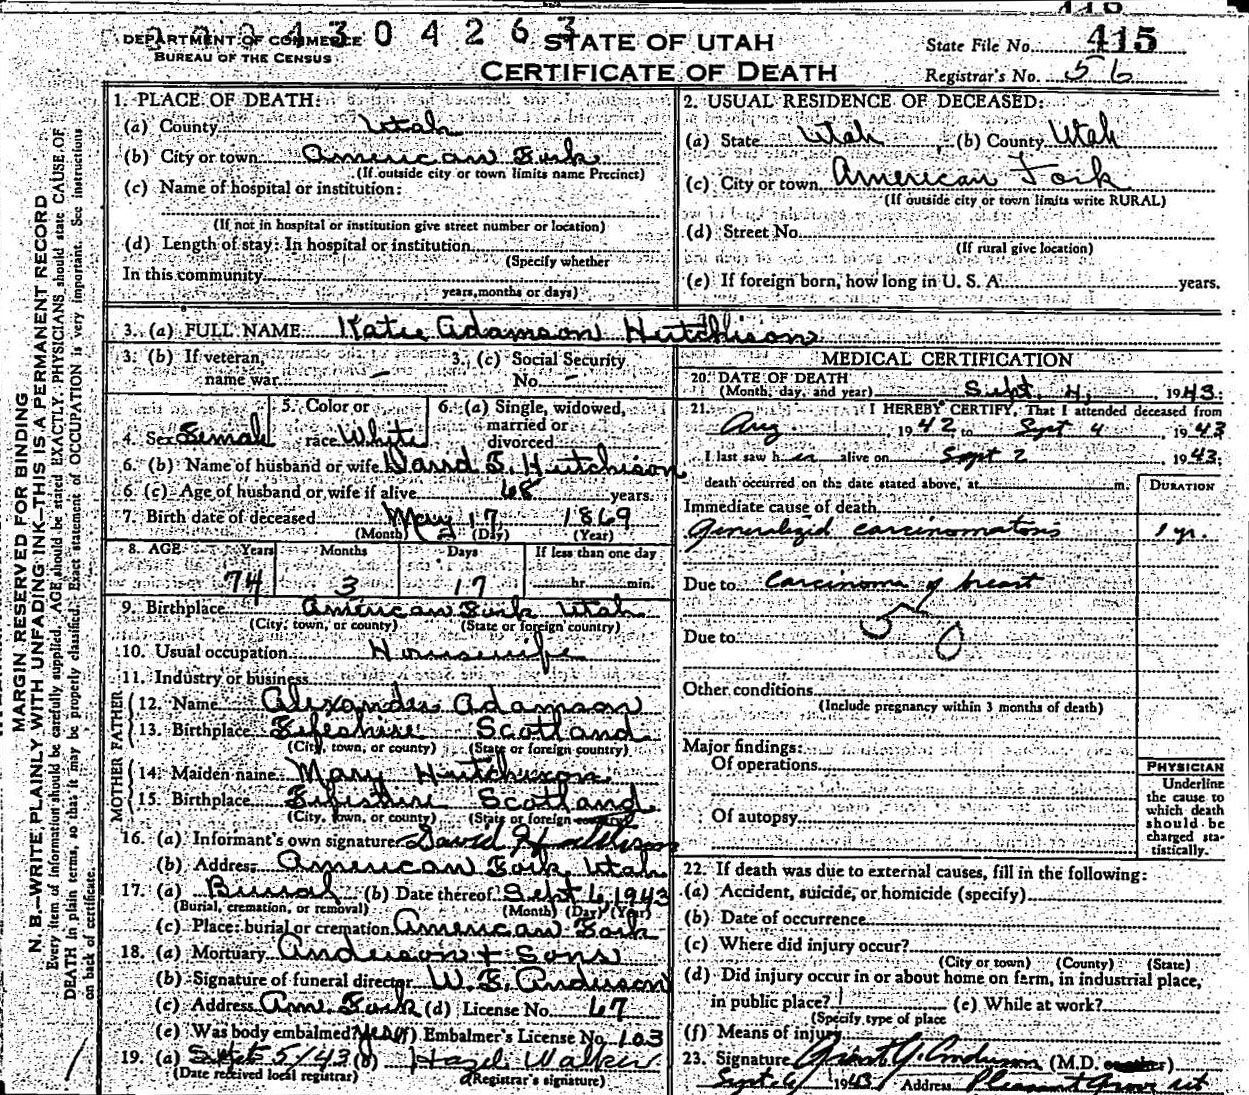 DEPARTMENT OF COMMERCE
BUREAU OF THE CENSUS
STATE OF UTAH
CERTIFICATE OF DEATH
State File No. 415
Registrar's No. 56
MARGIN RESERVED FOR BINDING
N. B.—WRITE PLAINLY WITH UNFADING INK—THIS IS A PERMANENT RECORD
Every item of information should be carefully supplied. AGE should be stated EXACTLY. PHYSICIANS should state CAUSE OF
DEATH in plain terms, so that it may be properly classified. Exact statement of OCCUPATION is very important. See instructions
on back of certificate.
1. PLACE OF DEATH:
(a) County Utah
(b) City or town American Fork
(If outside city or town limits name Precinct)
(c) Name of hospital or institution:
(If not in hospital or institution give street number or location)
(d) Length of stay: In hospital or institution
(Specify whether
In this community
years, months or days)
2. USUAL RESIDENCE OF DECEASED:
(a) State Utah (b) County Utah
(c) City or town American Fork
(If outside city or town limits write RURAL)
(d) Street No.
(If rural give location)
(e) If foreign born, how long in U. S. A. years.
3. (a) FULL NAME Katie Adamson Hutchison
3. (b) If veteran, name war –
3. (c) Social Security No. –
4. Sex Female
5. Color or race White
6. (a) Single, widowed, married or divorced
6. (b) Name of husband or wife David S. Hutchison
6. (c) Age of husband or wife if alive 68 years.
7. Birth date of deceased May 17 1869
(Month) (Day) (Year)
8. AGE Years Months Days If less than one day
74 3 17 hr. min.
9. Birthplace American Fork Utah
(City, town, or county) (State or foreign country)
10. Usual occupation Housewife
11. Industry or business
FATHER
12. Name Alexander Adamson
13. Birthplace Fifeshire Scotland
(City, town, or county) (State or foreign country)
MOTHER
14. Maiden name Mary Hutchison
15. Birthplace Fifeshire Scotland
(City, town, or county) (State or foreign country)
16. (a) Informant's own signature David Hutchison
(b) Address American Fork Utah
17. (a) Burial (b) Date thereof Sept 6, 1943
(Burial, cremation, or removal) (Month) (Day) (Year)
(c) Place: burial or cremation American Fork
18. (a) Mortuary Anderson + Sons
(b) Signature of funeral director W. E. Anderson
(c) Address Am. Fork (d) License No. 67
(e) Was body embalmed? yes (f) Embalmer's License No. 103
19. (a) Sept 5/43 (b) Hazel Walker
(Date received local registrar) (Registrar's signature)
MEDICAL CERTIFICATION
20. DATE OF DEATH
(Month, day, and year) Sept. 4, 1943
21. I HEREBY CERTIFY, That I attended deceased from
Aug. 1942, to Sept 4, 1943
I last saw her alive on Sept 2 1943;
death occurred on the date stated above, at m.
DURATION
Immediate cause of death
Generalized carcinomatosis 1 yr.
Due to Carcinoma of breast
50
Due to
Other conditions
(Include pregnancy within 3 months of death)
Major findings:
Of operations
Of autopsy
PHYSICIAN
Underline
the cause to
which death
should be
charged sta-
tistically.
22. If death was due to external causes, fill in the following:
(a) Accident, suicide, or homicide (specify)
(b) Date of occurrence
(c) Where did injury occur?
(City or town) (County) (State)
(d) Did injury occur in or about home on farm, in industrial place,
in public place? (e) While at work?
(Specify type of place
(f) Means of injury
23. Signature Grant Y. Anderson (M.D. or other)
Sept 6 1943 Address Pleasant Grove Ut